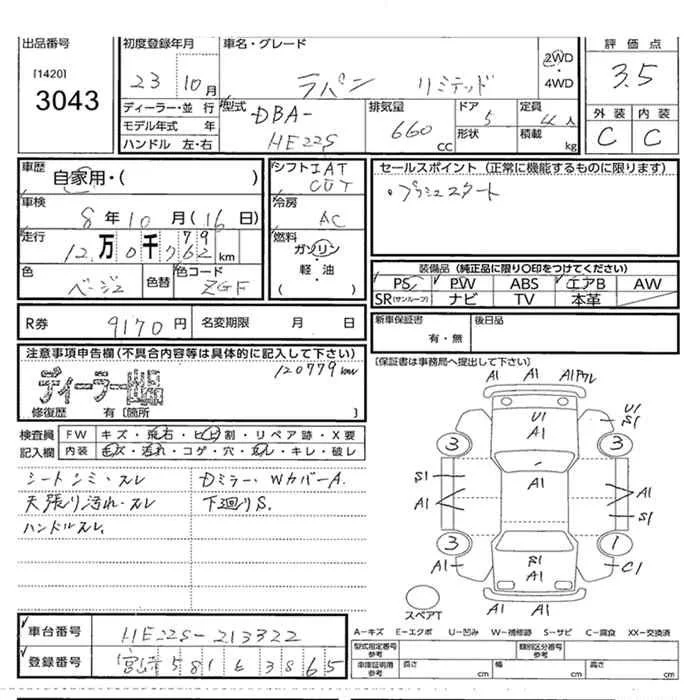 出品番号 初度登録年月 車名・グレード 評価点
[1420]
3043
23 10月 ラパン リミテッド 2WD・4WD 3.5
ディーラー・並行 型式 DBA- 排気量 ドア 5 定員 4人 外装 内装
モデル年式 年 HE22S 660 cc 形状 積載 kg C C
ハンドル 左・右
車歴 自家用・( ) シフト IAT セールスポイント (正常に機能するものに限ります)
CVT
車検 8年10月(16日) 冷房 AC ・プッシュスタート
走行 12万0千7 79 km 燃料 ガソリン・軽油 ( )
色 ベージュ 色替 色コード ZGF
装備品 (純正品に限り○印をつけてください)
PS PW ABS エアB AW
SR(サンルーフ) ナビ TV 本革
R券 9170円 名変期限 月 日 新車保証書 有・無 後日品
注意事項申告欄(不具合内容等は具体的に記入して下さい) (保証書は事務局へ提出して下さい)
120779km
ディーラー出品
修復歴 有 [箇所 ]
検査員 FW キズ・飛石・ヒビ割・リペア跡・X要
記入欄 内装 キズ・汚れ・コゲ・穴・スレ・キレ・破レ
シートシミ・スレ Dミラー、WカバーA.
天張り汚れ・スレ 下廻りS.
ハンドルスレ.
A1 A1 A1
U1 A1 U1 S1
3 3
A1
S1 A1 A1 S1
3 1
A1 S1 A1 C1
スペアT A1 A1 A1
車台番号 HE22S-213322
登録番号 581 3865
A-キズ E-エクボ U-凹み W-補修跡 S-サビ C-腐食 XX-交換済
型式指定番号 参考 類別区分番号 参考
車庫証明用 参考 長さ cm 幅 cm 高さ cm